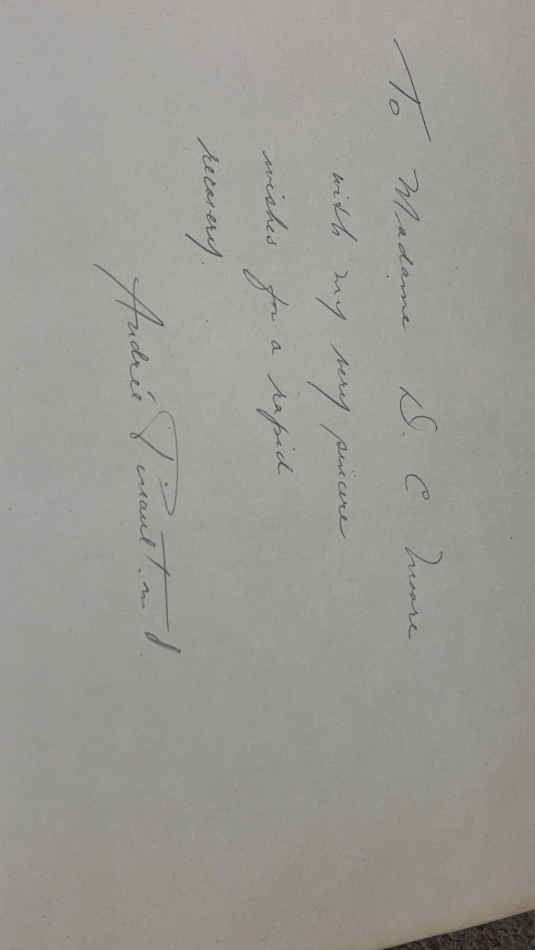 To Madame D. C Moore
with my very sincere
wishes for a rapid
recovery.
André Pinault. m.d.